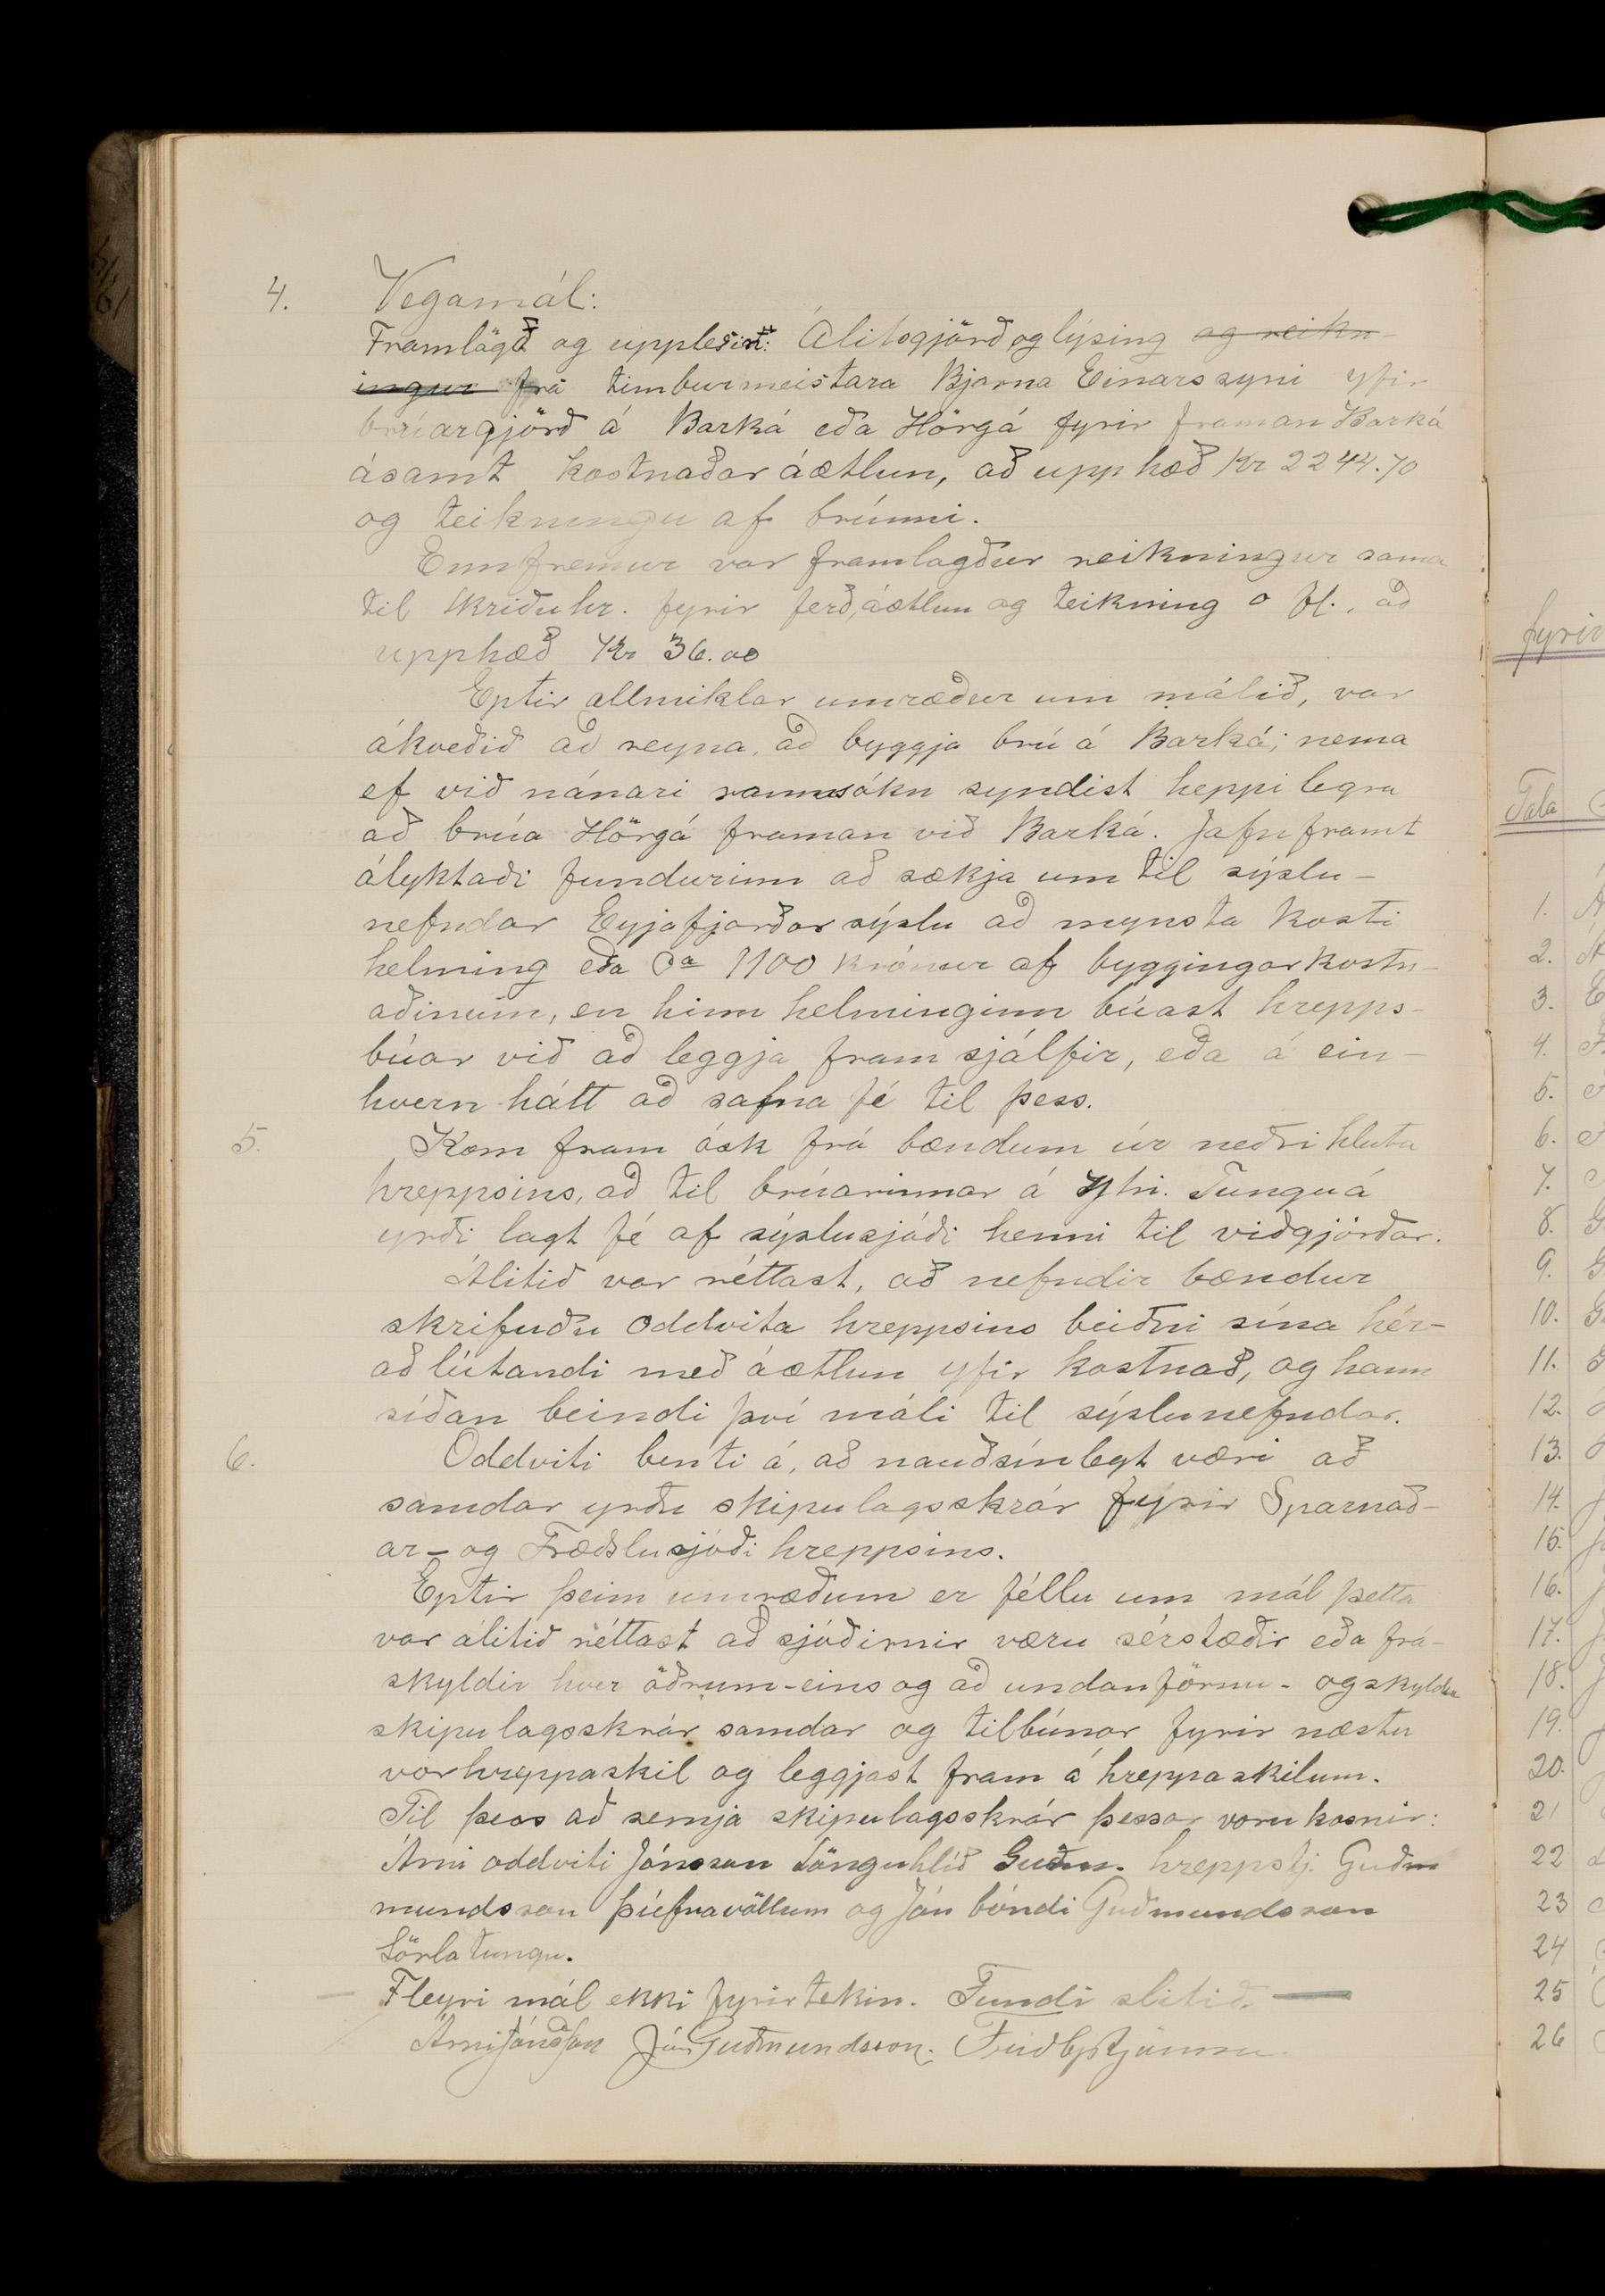 4. Vegamál:
Framlögð og upplesin: Álitsgjörð og lýsing og reikn-
ingur frá timburmeistara Bjarna Einarssyni yfir
brúargjörð á Barká eða Hörgá fyrir framan Barká
ásamt kostnaðaráætlun, að upphæð Kr 2244.70
og teikningu af brúnni.
Ennfremur var framlagður reikningur sama
til Skriðuhr. fyrir ferð, áætlun og teikning o fl., að
upphæð Kr 36.00
Eptir allmiklar umræður um málið, var
ákveðið að reyna, að byggja brú á Barká; nema
ef við nánari rannsókn syndist heppilegra
að brúa Hörgá framan við Barká. Jafnframt
ályktaði fundurinn að sækja um til sýslu-
nefndar Eyjafjarðarsýslu að mynsta kosti
helming eða Ca 1100 krónur af byggingarkostn-
aðinum, en hinn helminginn búast hrepps-
búar við að leggja fram sjálfir, eða á ein-
hvern hátt að safna fé til þess.
5. Kom fram ósk frá bændum úr neðri hluta
hreppsins, að til brúarinnar á Ytri. Tunguá
yrði lagt fé af sýslusjóði henni til viðgjörðar.
Álitið var réttast, að nefndir bændur
skrifuðu oddvita hreppsins beiðni sína hér-
að lútandi með áætlun yfir kostnað, og hann
síðan beindi því máli til sýslunefndar.
6. Oddviti benti á, að nauðsínlegt væri að
samdar yrðu skipulagsskrár fyrir Sparnað-
ar- og Fræðslusjóði hreppsins.
Eptir þeim umræðum er féllu um mál þetta
var álitið réttast að sjóðirnir væru sérstæðir eða frá-
skyldir hver öðrum - eins og að undanförnu - og skyldu
skipulagsskrár samdar og tilbúnar fyrir næstu
vorhreppaskil og leggjast fram á hreppaskilum.
Til þess að semja skipulagsskrár þessar voru kosnir:
Árni oddviti Jónsson Lönguhlíð Guðm. hreppstj. Guðm
mundsson Þúfnavöllum og Jón bóndi Guðmundsson
Sörlatungu.
Fleyri mál ekki fyrirtekin. Fundi slitið. —
Árni Jónsson Jón Guðmundsson.
fyrir
Tala
1.
2.
3.
4.
5.
6.
7.
8.
9.
10.
11.
12.
13.
14.
15.
16.
17.
18.
19.
20.
21
22
23
24
25
26